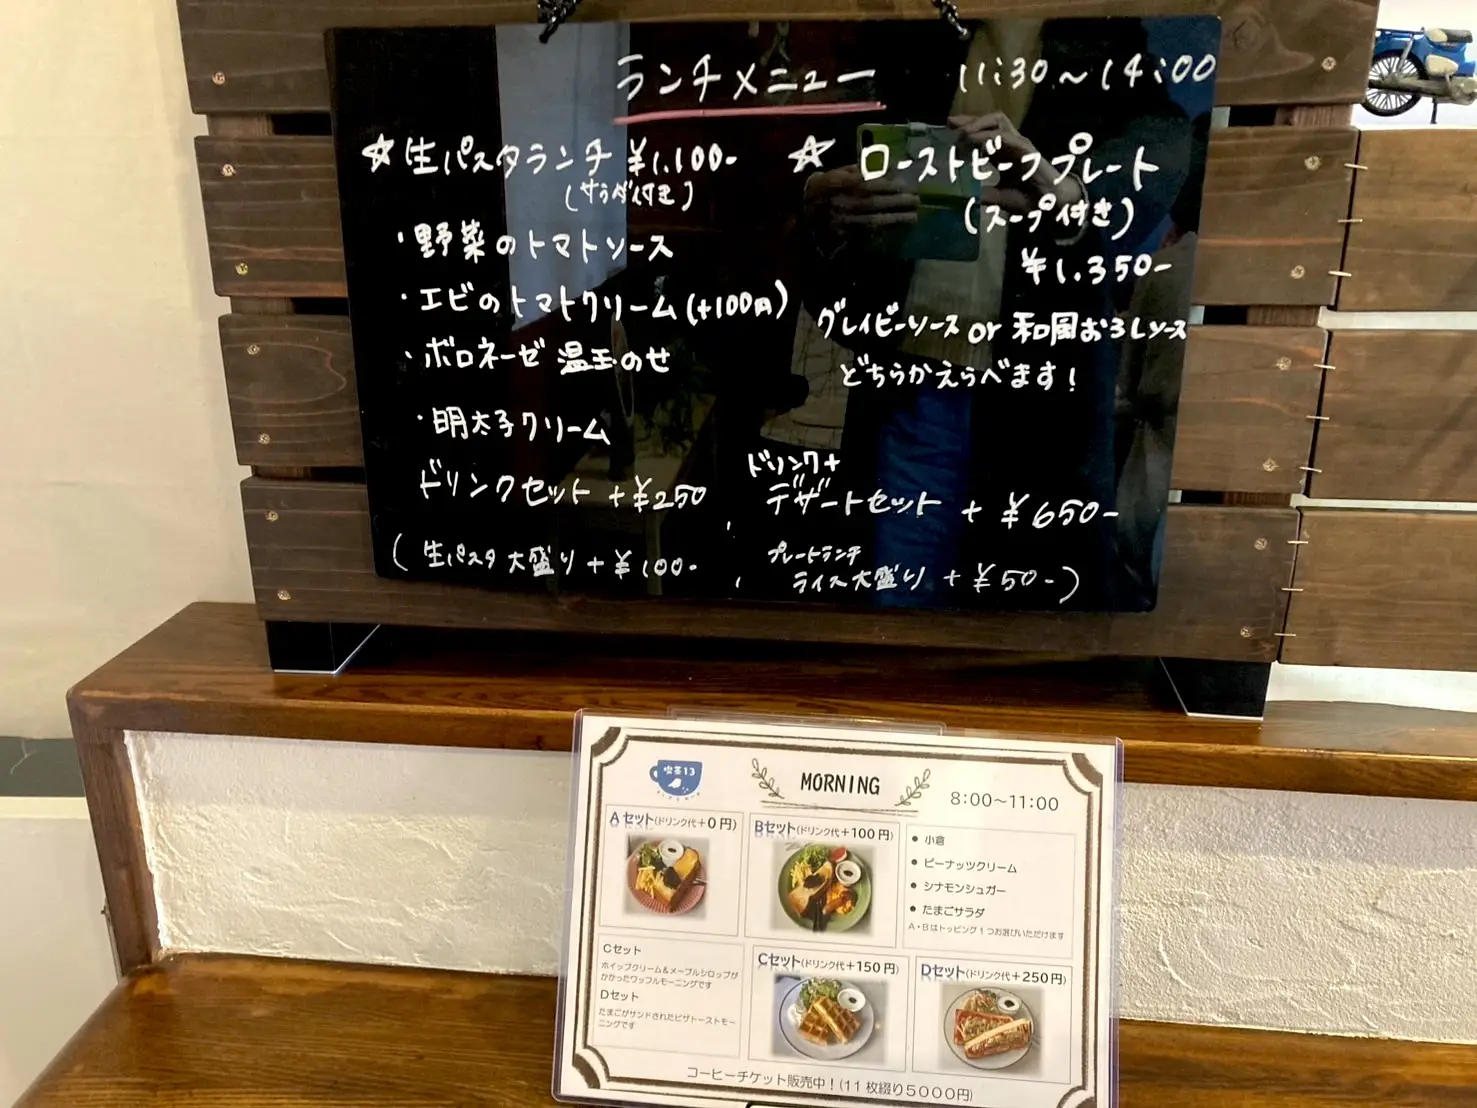 ランチメニュー 11:30~14:00
☆生パスタランチ ¥1.100-
(サラダ付き)
・野菜のトマトソース
・エビのトマトクリーム(+100円)
・ボロネーゼ 温玉のせ
・明太子クリーム
ドリンクセット +¥250
(生パスタ大盛り+¥100-
☆ローストビーフプレート
(スープ付き)
¥1.350-
グレイビーソース or 和風おろしソース
どちらかえらべます!
ドリンク+
デザートセット + ¥650-
プレートランチ
ライス大盛り + ¥50-)
喫茶13
MORNING
8:00~11:00
Aセット(ドリンク代+0円)
Bセット(ドリンク代+100円)
● 小倉
● ピーナッツクリーム
● シナモンシュガー
● たまごサラダ
A・Bはトッピング1つお選びいただけます
Cセット
ホイップクリーム&メープルシロップが
かかったワッフルモーニングです
Dセット
たまごがサンドされたピザトーストモー
ニングです
Cセット(ドリンク代+150円)
Dセット(ドリンク代+250円)
コーヒーチケット販売中!(11枚綴り5000円)